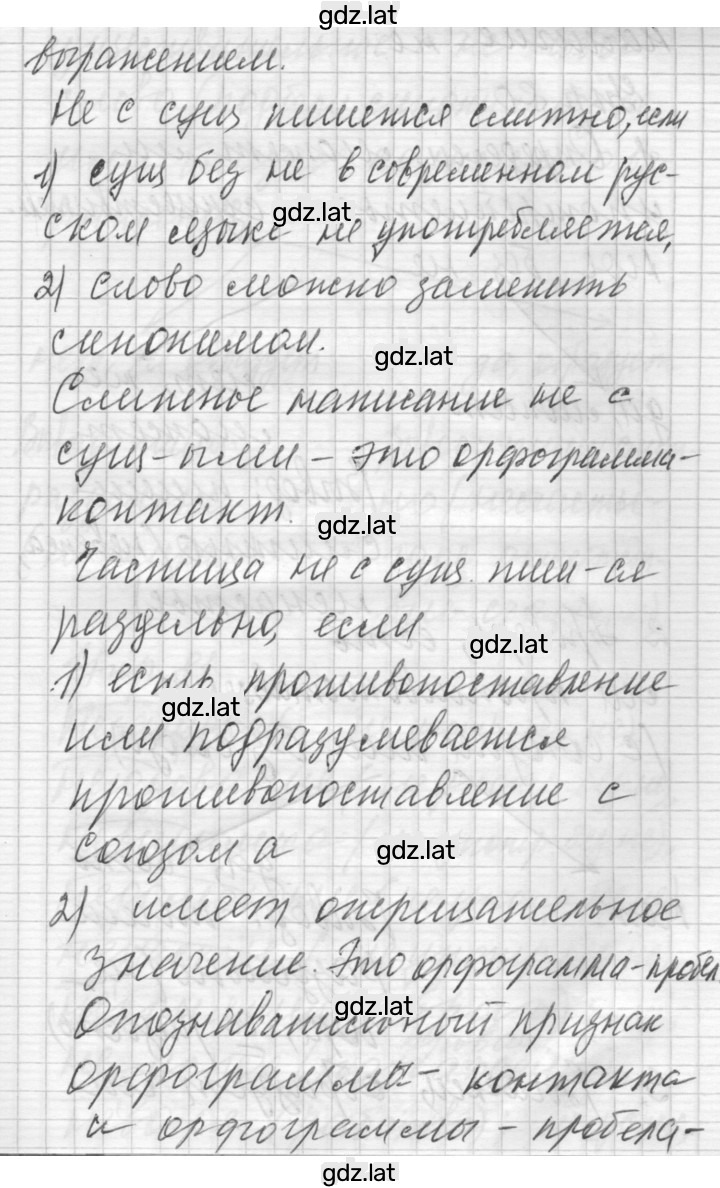 gdz.lat
выражением.
Не с сущ пишется слитно, если
1) сущ без не в современном рус-
gdz.lat
ском языке не употребляется,
2) слово можно заменить
синонимом.
gdz.lat
Слитное написание не с
сущ-ыми - это орфограмма-
контакт.
gdz.lat
Частица не с сущ. пиш-ся
раздельно, если
gdz.lat
1) есть противопоставление
gdz.lat
или подразумевается
противопоставление с
союзом а
gdz.lat
2) имеет отрицательное
значение. Это орфограмма-пробел.
gdz.lat
Опознавательный признак
орфограммы- контакта
и орфограммы - пробела-
gdz.lat